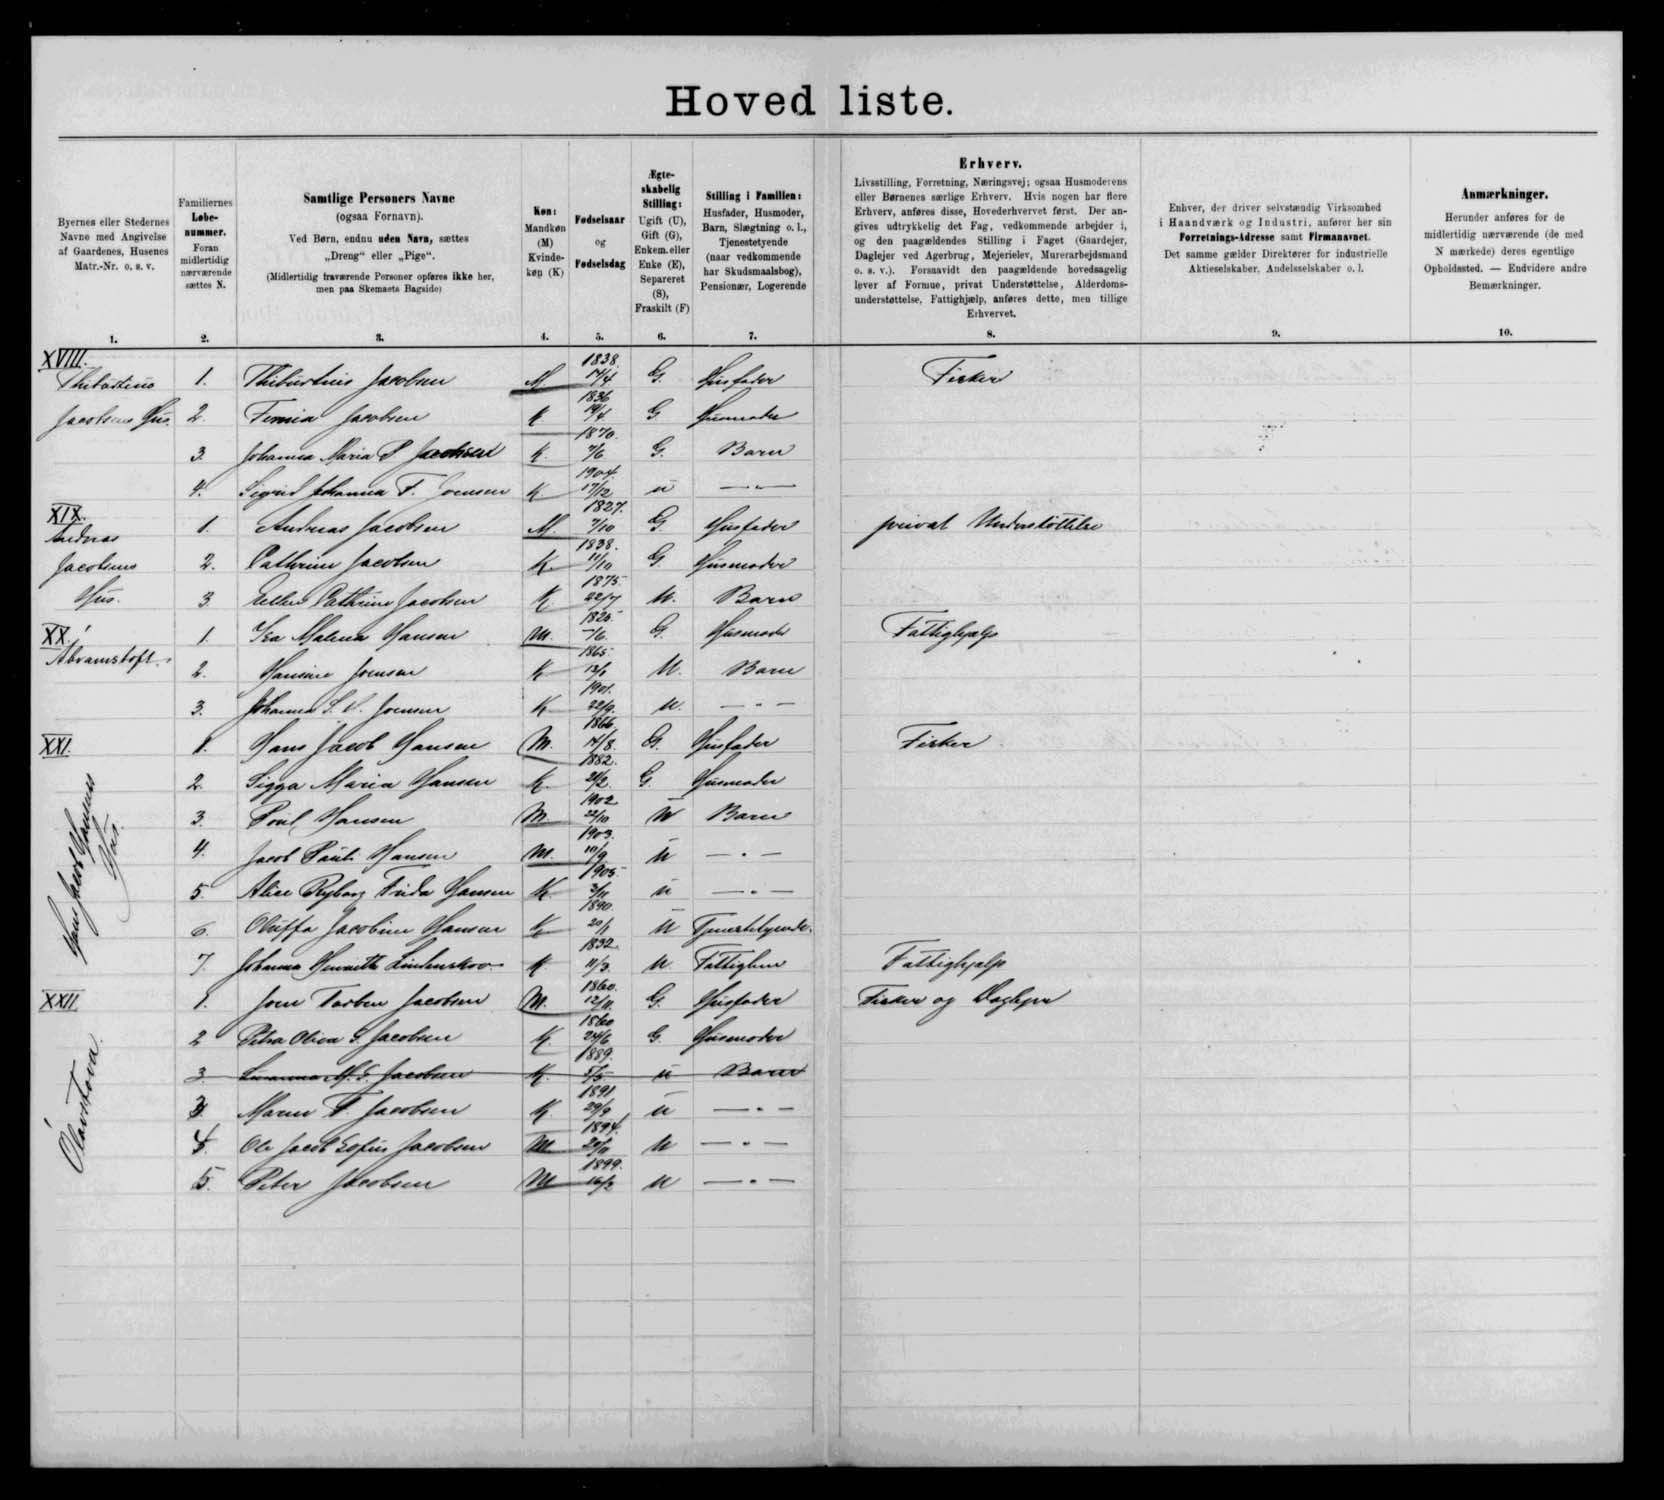 Hovedliste.
Byernes eller Stedernes
Navne med Angivelse
af Gaardenes, Husenes
Matr.-Nr. o. s. v.
1.
Familiernes
Løbe-
nummer.
Foran
midlertidig
nærværende
sættes N.
2.
Samtlige Personers Navne
(ogsaa Fornavn).
Ved Børn, endnu uden Navn, sættes
„Dreng“ eller „Pige“.
(Midlertidig fraværende Personer opføres ikke her,
men paa Skemaets Bagside)
3.
Køn:
Mandkøn
(M)
Kvinde-
køn (K)
4.
Fødselsaar
og
Fødselsdag
5.
Ægte-
skabelig
Stilling:
Ugift (U),
Gift (G),
Enkem. eller
Enke (E),
Separeret
(S),
Fraskilt (F)
6.
Stilling i Familien:
Husfader, Husmoder,
Barn, Slægtning o. l.,
Tjenestetyende
(naar vedkommende
har Skudsmaalsbog),
Pensionær, Logerende
7.
Erhverv.
Livsstilling, Forretning, Næringsvej; ogsaa Husmoderens
eller Børnenes særlige Erhverv. Hvis nogen har flere
Erhverv, anføres disse, Hovederhvervet først. Der an-
gives udtrykkelig det Fag, vedkommende arbejder i,
og den paagældendes Stilling i Faget (Gaardejer,
Daglejer ved Agerbrug, Mejerielev, Murerarbejdsmand
o. s. v.). Forsaavidt den paagældende hovedsagelig
lever af Formue, privat Understøttelse, Alderdoms-
understøttelse, Fattighjælp, anføres dette, men tillige
Erhvervet.
8.
Enhver, der driver selvstændig Virksomhed
i Haandværk og Industri, anfører her sin
Forretnings-Adresse samt Firmanavnet.
Det samme gælder Direktører for industrielle
Aktieselskaber, Andelsselskaber o. l.
9.
Anmærkninger.
Herunder anføres for de
midlertidig nærværende (de med
N mærkede) deres egentlige
Opholdssted. — Endvidere andre
Bemærkninger.
10.
XVIII.
Thiburtius 1. Thiburtius Jacobsen M 1838. 14/4 G. Husfader Fisker
Jacobsens Hus. 2. Jacobsen K 1836 14/4 G Husmoder
3. Johanna Maria P Jacobsen K. 1870. 7/6 G. Barn
4. Sigrid Johanna F. Joensen K 1904. 17/12 u — " —
XIX.
Andreas 1. Andreas Jacobsen M. 1827. 7/10 G. Husfader privat Understøttelse
Jacobsens 2. Cathrine Jacobsen K. 1838. 11/10 G. Husmoder
Hus. 3. Ellen Cathrine Jacobsen K 1875. 22/7 U. Barn
XX. 1. Malena Hansen M. 1825. 7/6. G. Husmoder Fattighjælp
Abramstoft. 2. Hansine Joensen K 1865. U. Barn
3. Johanna Joensen K 1901. 22/9. U. — " —
XXI. 1. Hans Jacob Hansen M. 1866. 14/8. G. Husfader Fisker
Hans Jacob Hansens Hus.
2. Sigga Maria Hansen K. 1882. 21/2. G. Husmoder
3. Poul Hansen M 1902 22/10 U Barn
4. Jacob Pauli Hansen M. 1903. 10/9 U — " —
5. Alice Ryberg Frida Hansen K. 1905. 3/11 u — " —
6. Oluffa Jacobine Hansen K 1890. 20/1 U Tjenestetyende.
7. Johanna Henriette Lindenskov K. 1832. 11/3. U. Fattiglem Fattighjælp
XXII. 1. Joen Torben Jacobsen M. 1860. 12/11. G. Husfader Fisker og Daglejer
Olavstova.
2 Petra Oliva S. Jacobsen K. 1860 24/6 G. Husmoder
3. Susanna M. S. Jacobsen K. 1889. 5/5 u Barn
3. Maren F. Jacobsen K 1891 29/9 u — " —
4. Ole Jacob Sofus Jacobsen M 1894. 20/11 U — " —
5. Peter Jacobsen M 1899. 16/2 U — " —